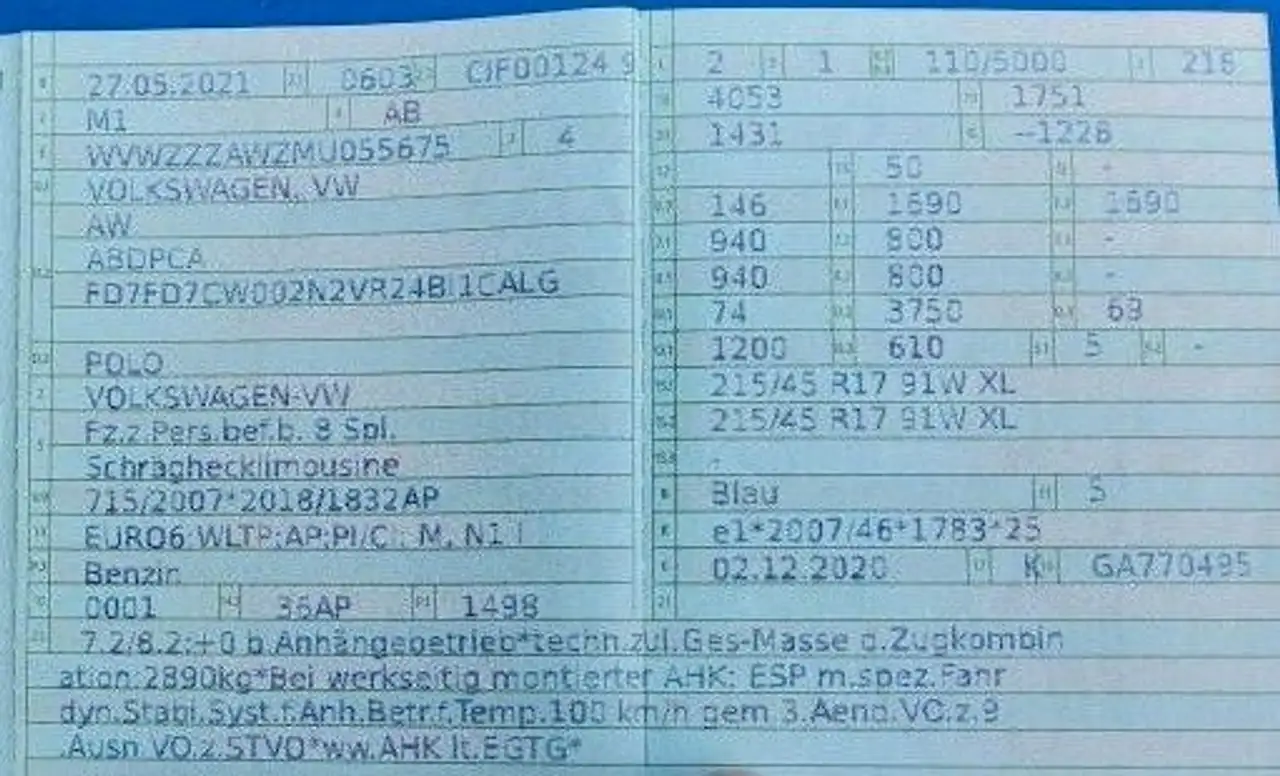 27.05.2021 0603 CJF00124 9
M1 AB
WVWZZZAWZMU055675 4
VOLKSWAGEN, VW
AW
ABDPCA
FD7FD7CW002N2VR24BI1CALG
POLO
VOLKSWAGEN-VW
Fz.z.Pers.bef.b. 8 Spl.
Schräghecklimousine
715/2007*2018/1832AP
EURO6 WLTP;AP;PI/CI; M, N1 I
Benzin
0001 36AP 1498
2 1 110/5000 216
4053 1751
1431 --1228
50 -
146 1690 1690
940 800 -
940 800 -
74 3750 63
1200 610 5 -
215/45 R17 91W XL
215/45 R17 91W XL
-
Blau 5
e1*2007/46*1783*25
02.12.2020 K GA770495
7.2/8.2:+0 b.Anhängebetrieb*techn.zul.Ges-Masse d.Zugkombin
ation:2890kg*Bei werkseitig montierter AHK: ESP m.spez.Fahr
dyn.Stabi.Syst.f.Anh.Betr.f.Temp.100 km/h gem 3.Aend.VO.z.9
.Ausn.VO.z.STVO*ww.AHK lt.EGTG*